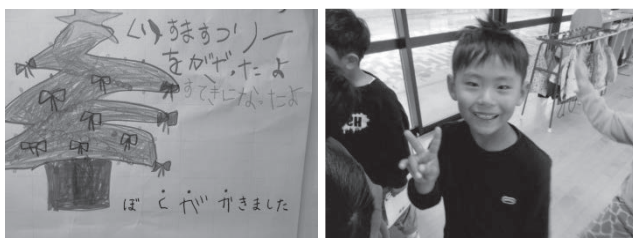 くりすますつりー
をかざったよ
すてきになったよ
ぼくがかきました